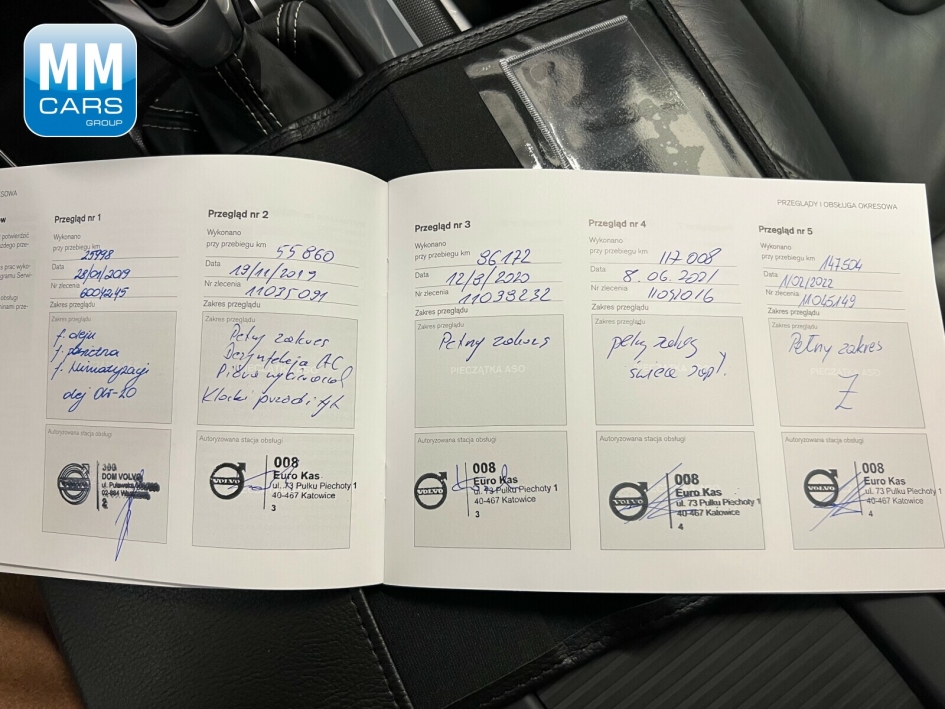 MM
CARS
GROUP
PRZEGLĄDY I OBSŁUGA OKRESOWA
Przegląd nr 1
Wykonano
przy przebiegu km 25998
Data 28/01/2019
Nr zlecenia
Zakres przeglądu
Zakres przeglądu
f. oleju
olej 0W-20
Autoryzowana stacja obsługi
VOLVO
DOM VOLVO
Przegląd nr 2
Wykonano
przy przebiegu km 55860
Data 19/11/2019
Nr zlecenia 11035091
Zakres przeglądu
Zakres przeglądu
Pełny zakres
Dezynfekcja AC
Klocki przód i tył
Autoryzowana stacja obsługi
VOLVO
008
Euro Kas
ul. 73 Pułku Piechoty 1
40-467 Katowice
3
Przegląd nr 3
Wykonano
przy przebiegu km 96172
Data 12/8/2020
Nr zlecenia 11039232
Zakres przeglądu
Zakres przeglądu
Pełny zakres
PIECZĄTKA ASO
Autoryzowana stacja obsługi
VOLVO
008
Euro Kas
ul. 73 Pułku Piechoty 1
40-467 Katowice
3
Przegląd nr 4
Wykonano
przy przebiegu km 117 008
Data 8.06.2021
Nr zlecenia
Zakres przeglądu
Zakres przeglądu
pełny zakres
świece zapł.
Autoryzowana stacja obsługi
VOLVO
008
Euro Kas
ul. 73 Pułku Piechoty 1
40-467 Katowice
4
Przegląd nr 5
Wykonano
przy przebiegu km 147504
Data 1/02/2022
Nr zlecenia 11045149
Zakres przeglądu
Zakres przeglądu
Pełny zakres
Autoryzowana stacja obsługi
VOLVO
008
Euro Kas
ul. 73 Pułku Piechoty 1
40-467 Katowice
4